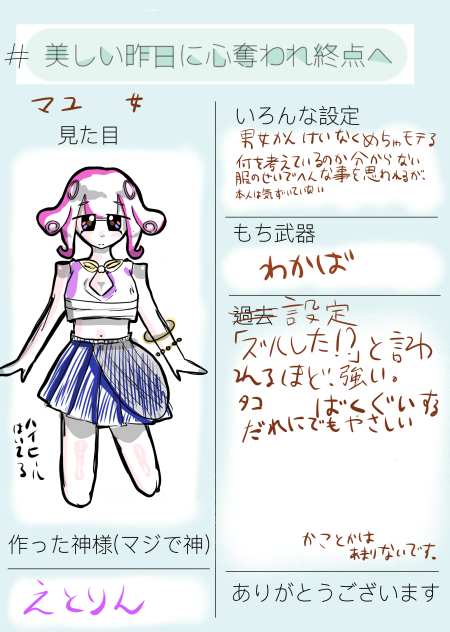 # 美しい昨日に心奪われ終点へ
マユ 女
見た目
ハイヒール
はいてる
作った神様(マジで神)
えとりん
いろんな設定
男女かんけいなくめちゃモテる
何を考えているのか分からない
服のせいでへんな事を思われるが、
本人は気ずいていない
もち武器
わかば
過去 設定
「ズルした!?」と言わ
れるほど、強い。
タコ ばくぐいする
だれにでもやさしい
かことかは
あまりないです。
ありがとうございます